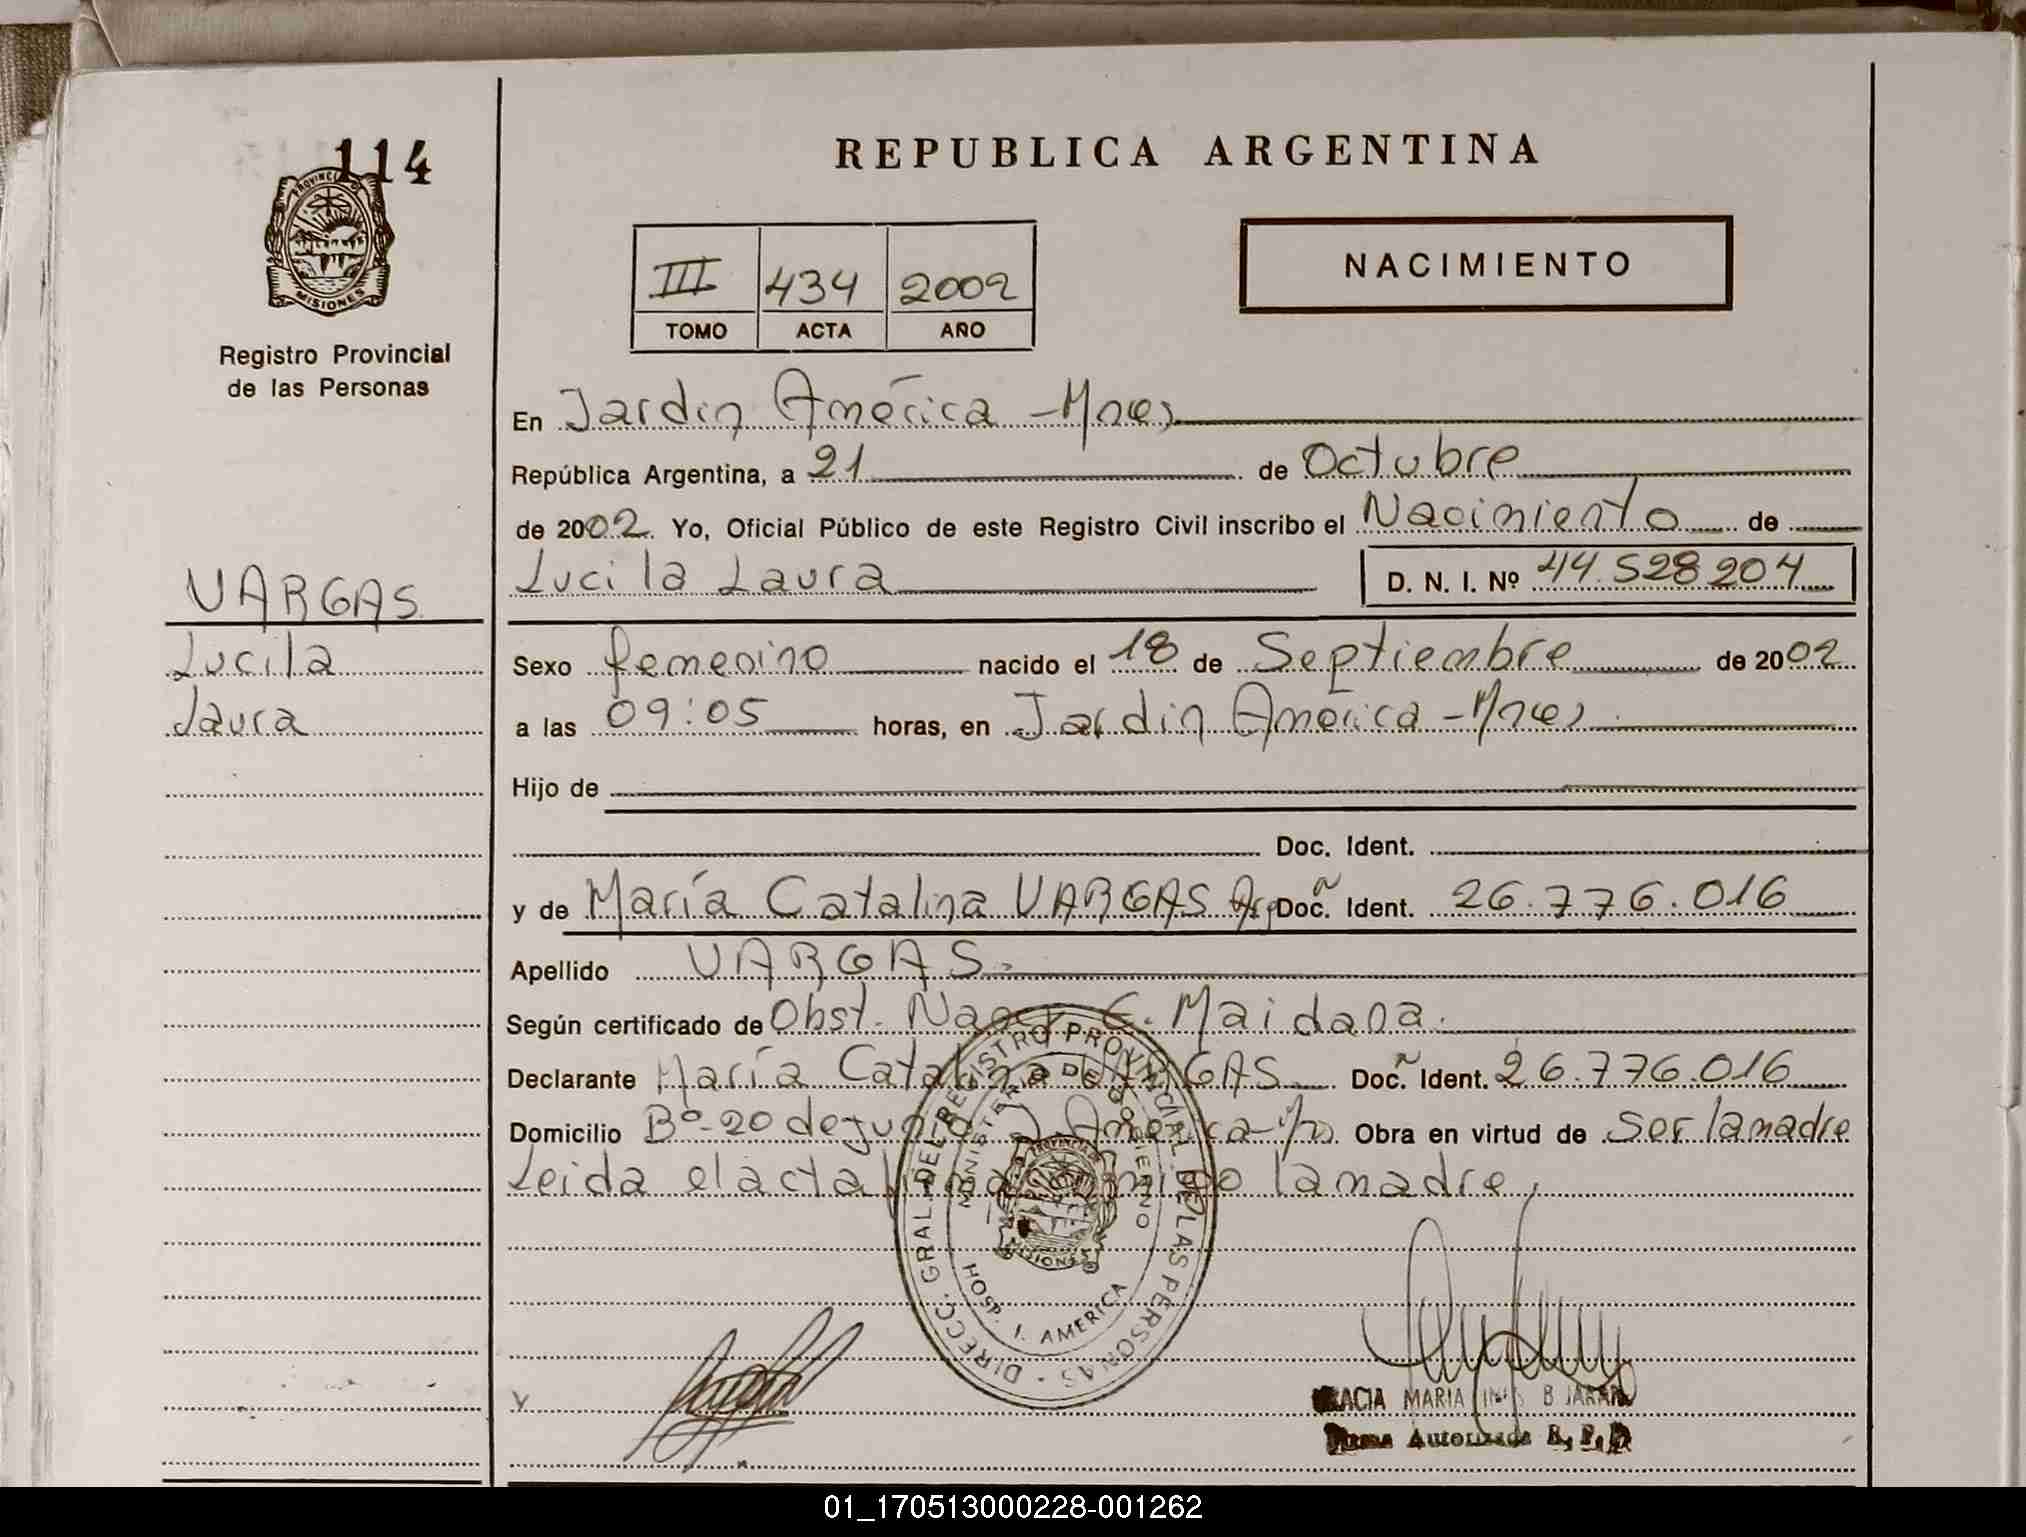 114
PROVINCIA DE
MISIONES
Registro Provincial
de las Personas
VARGAS
Lucila
Laura
REPUBLICA ARGENTINA
III 434 2002
TOMO ACTA AÑO
NACIMIENTO
En Jardin América - Mnes
República Argentina, a 21 de Octubre
de 2002. Yo, Oficial Público de este Registro Civil inscribo el Nacimiento de
Lucila Laura D. N. I. Nº 44.528 204
Sexo femenino nacido el 18 de Septiembre de 2002
a las 09:05 horas, en Jardin América - Mnes
Hijo de
Doc. Ident.
y de María Catalina VARGAS Arg Doc. Ident. 26.776.016
Apellido VARGAS.
Según certificado de Obst. Nancy E. Maidana.
Declarante María Catalina VARGAS Doc. Ident. 26.776.016
Domicilio Bº-20 de junio J. América - Obra en virtud de ser la madre
Leida el acta firma conmigo la madre,
DIRECC. GRAL. DEL REGISTRO PROVINCIAL DE LAS PERSONAS
MINISTERIO DE GOBIERNO
PROVINCIA
MISIONES
HOSP. J. AMERICA
MARIA
Firma Autorizada R. P. P
01_170513000228-001262